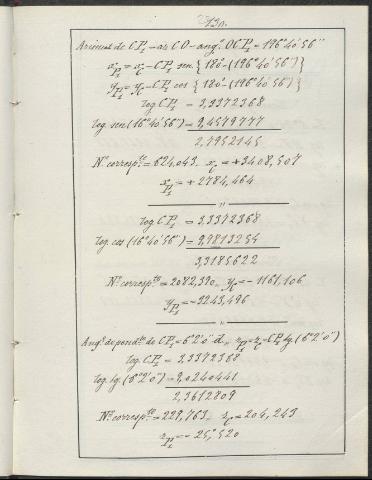 131.
Azimut de CP₁ = az CO - angº OCP₁ = 196°40'56"
x_P₁ = x_c - CP₁ sen {180-(196°40'56")}
y_P₁ = y_c - CP₁ cos {180-(196°40'56")}
log CP₁ = 3,3372368
log. sen (16°40'56") = 9,4579777
2,7952145
Nº corresp.te = 624,043. x_c = +3408,507
x_P₁ = +2784,464
"
log CP₁ = 3,3372368
log. cos (16°40'56") = 9,9813254
3,3185622
Nº corresp.te = 2082,390. y_c = -1161,106
y_P₁ = -3243,496
"
Angº depond.te de CP₁ = 6°2'0" d. z_P₁ = z_c - CP₁ tg. (6°2'0")
log. CP₁ = 3,3372368
log. tg. (6°2'0") = 9,0240441
2,3612809
Nº corresp.te = 229,763. z_c = 204,243
z_P₁ = - 25,520